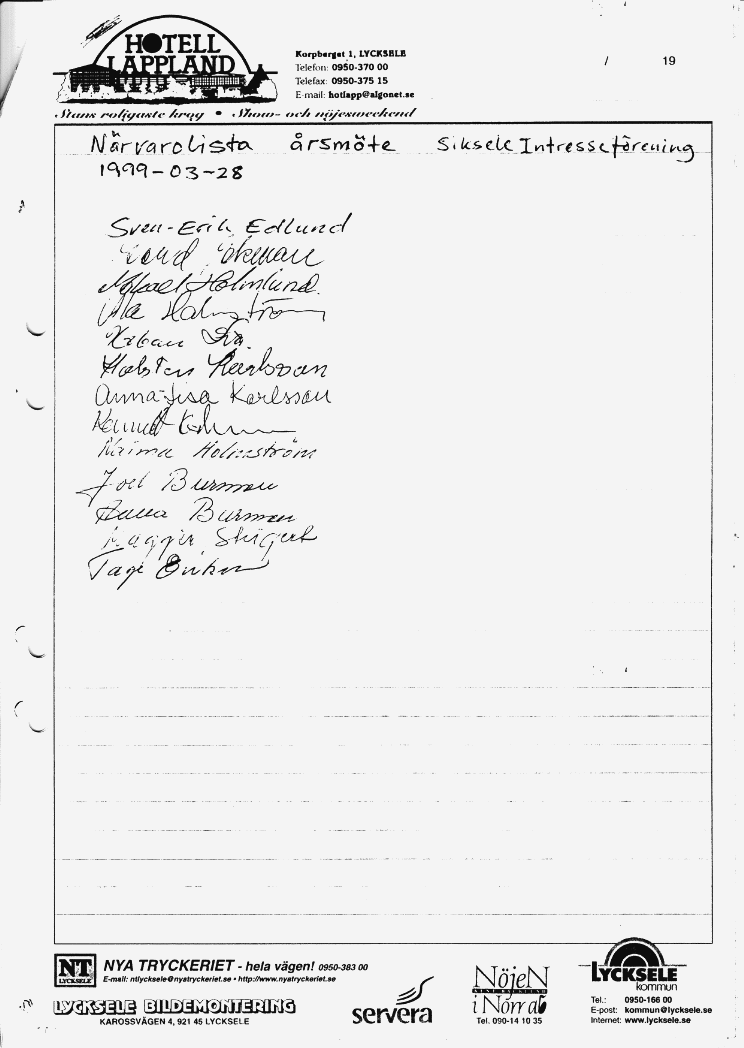 HOTELL LAPPLAND
Korpberget 1, LYCKSELE
Telefon: 0950-370 00
Telefax: 0950-375 15
E-mail: hotlapp@algonet.se
/ 19
Stans roligaste krog • Show- och nöjesweekend
Närvarolista årsmöte Siksele Intresseförening
1999-03-28
Sven-Erik Edlund
Holmlund
Holmström
Urban
Holsten Karlsson
Anna-Lisa Karlsson
Naima Holmström
Joel Burman
Anna Burman
Tage
NT LYCKSELE
NYA TRYCKERIET - hela vägen! 0950-383 00
E-mail: ntlycksele@nyatryckeriet.se • http://www.nyatryckeriet.se
LYCKSELE BILDEMONTERING
KAROSSVÄGEN 4, 921 45 LYCKSELE
servera
Nöjen
i Norr
Tel. 090-14 10 35
LYCKSELE
kommun
Tel.: 0950-166 00
E-post: kommun@lycksele.se
Internet: www.lycksele.se